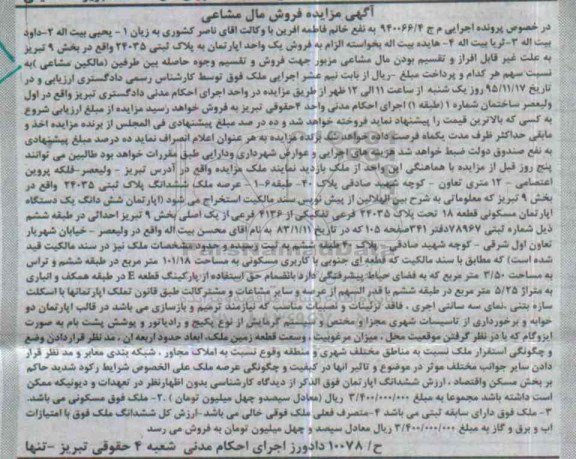 آگهی مزایده فروش مال مشاعی
در خصوص پرونده اجرایی م ج ۹۴۰۰۶۶/۴ به نفع خانم فاطمه افرین با وکالت اقای ناصر کشوری به زیان ۱- یحیی بیت اله ۲-داود
بیت اله ۳-ثریا بیت اله ۴- هایده بیت اله بخواسته الزام به فروش یک واحد اپارتمان به پلاک ثبتی ۲۴۰۳۵ واقع در بخش ۹ تبریز
به علت غیر قابل افراز و تقسیم بودن مال مشاعی مزبور جهت فروش و تقسیم وجوه حاصله بین طرفین (مالکین مشاعی )به
نسبت سهم هر کدام و پرداخت مبلغ -ریال از بابت نیم عشر اجرایی ملک فوق توسط کارشناس رسمی دادگستری ارزیابی و در
تاریخ ۹۵/۱۱/۱۷ روز یک شنبه از ساعت ۱۱ الی ۱۲ ظهر از طریق مزایده در واحد اجرای احکام مدنی دادگستری تبریز واقع در اول
ولیعصر ساختمان شماره ۱ (طبقه ۱) اجرای احکام مدنی واحد ۴حقوقی تبریز به فروش خواهد رسید مزایده از مبلغ ارزیابی شروع
به کسی که بالاترین قیمت را پیشنهاد نماید فروخته خواهد شد و ده در صد مبلغ پیشنهادی فی المجلس از برنده مزایده اخذ و
مابقی حداکثر ظرف مدت یکماه فرصت داده خواهد شد برنده مزایده به هر عنوان اعلام انصراف نماید ده درصد مبلغ پیشنهادی
به نفع صندوق دولت ضبط خواهد شد هزینه های اجرایی و عوارض شهرداری ودارایی طبق مقررات خواهد بود طالبین می توانند
پنج روز قبل از مزایده با هماهنگی این واحد از ملک بازدید نمایند ملک مزایده واقع در آدرس تبریز - ولیعصر-فلکه پروین
اعتصامی - ۱۲ متری تعاون - کوچه شهید صادقی پلاک ۴۰- طبقه۶-۱ - عرصه ملک ششدانگ پلاک ثبتی ۲۴۰۳۵ واقع در
بخش ۹ تبریز که معلوماتی به شرح بین الهلالین از پیش نویس سند مالکیت استخراج می شود (اپارتمان شش دانگ یک دستگاه
اپارتمان مسکونی قطعه ۱۸ تحت پلاک ۲۴۰۳۵ فرعی تفکیکی از ۴۱۳۶ فرعی از یک اصلی بخش ۹ تبریز احداثی در طبقه ششم
ذیل شماره ثبتی ۷۸۹۶۷دفتر ۳۴۱صفحه ۱۰۵ که در تاریخ ۸۳/۱/۱۱ به نام آقای محسن بیت اله واقع در ولیعصر - خیابان شهریار
تعاون اول شرقی - کوچه شهید صادقی - پلاک ۴۰ طبقه ششم به ثبت رسیده و حدود و مشخصات ملک نیز در سند مالکیت قید
شده است) که مطابق با سند مالکیت که قطعه ای جنوبی با کاربری مسکونی به مساحت ۱۰۱/۱۸ متر مربع در طبقه ششم و تراس
به مساحت ۳/۵۰ متر مربع که به فضای حیاط پیشرفتگی دارد بانضمام حق استفاده از پارکینگ قطعه E در طبقه همکف و انباری
به متراژ ۵/۲۵ متر مربع در طبقه ششم با قدر السهم از عرصه و سایر مشاعات و مشترکات طبق قانون تملک اپارتمانها با اسکلت
سازه بتنی ،نمای سه سانتی اجری ، فاقد تزئینات و نصبیات مناسب که نیازمند ترمیم و بازسازی می باشد در قالب اپارتمان دو
خوابه و برخورداری از تاسیسات شهری مجزا و مختص و سیستم گرمایش از نوع پکیج و رادیاتور و پوشش پشت بام به صورت
ایزوگام که با در نظر گرفتن موقعیت محل ، میزان مرغوبیت ، وسعت قطعه زمین ملک، ابعاد حدود اربعه ان ، مد نظر قراردادن وضع
و چگونگی استقرار ملک نسبت به مناطق مختلف شهری و منطقه وقوع نسبت به املاک مجاور ، شبکه بندی معابر و مد نظر قرار
دادن سایر جوانب مختلف موثر در موضوع و تاثیر انها در کیفیت و چگونگی عرصه ملک علی الخصوص شرایط رکود شدید حاکم
بر بخش مسکن واقتصاد ، ارزش ششدانگ اپارتمان فوق الذکر از دیدگاه کارشناسی بدون اظهارنظر در تعهدات و دیونیکه ممکن
است داشته باشد مجموعا به مبلغ ۳/۴۰۰/۰۰۰/۰۰۰ ریال (معادل سیصدو چهل میلیون تومان ) ۲۰- ملک فوق مسکونی می باشد
۳- ملک فوق دارای سابقه ثبتی می باشد ۴-متصرف فعلی ملک فوقی خالی می باشد-ارزش کل ششدانگ ملک فوق با امتیازات
اب و برق و گاز به مبلغ ۳/۴۰۰/۰۰۰/۰۰۰ ریال معادل سیصد و چهل میلیون تومان به فروش می رسد
ح/ ۱۰۰۷۸ دادورز اجرای احکام مدنی شعبه ۴ حقوقی تبریز -تنها